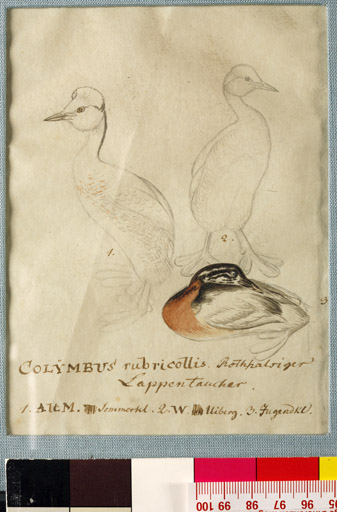 1.
2.
3
COLÿMBUS rubricollis. Rothhalsiger
Lappentaucher.
1. Alt M. Sommerkl. 2. W. Uiberg. 3. Jugendkl.
100 99 98 97 96 95 94